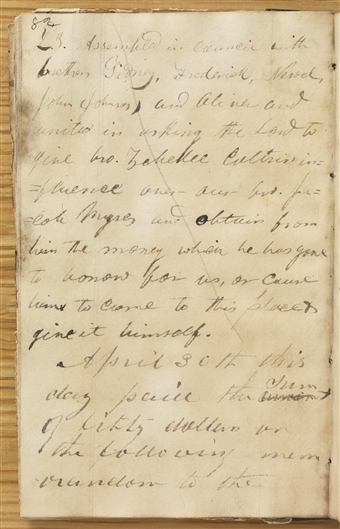 82
23. Assembled in council with
brethren Sidney, Frederick, Newel,
John Johnson, and Oliver and
united in asking the Lord to
give bro. Zebedee Coltrin in-
=fluence over our bro. Ja-
=cob Myres and obtain from
him the money which he has gone
to borrow for us, or cause
him to come to this place &
give it himself.
April 30th this
day paid the amount Sum
of fifty dollars on
the following mem
orandom to the